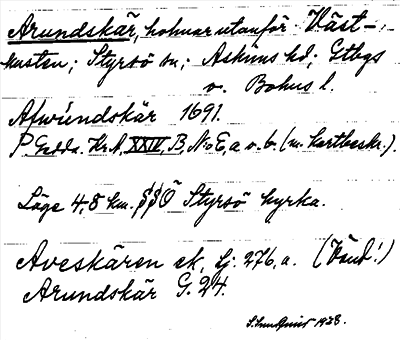 Arundskär, holmar utanför Väst-
kusten; Styrsö sn; Askims hd; Gtbgs
o. Bohus l.
Afwundskär 1691.
P. Gedda. Kr. A, XXIV, B, No 6, a o. b. (m. kartbeskr.).
Läge 4,8 km. SSÖ Styrsö kyrka.
Aveskären ek. bl. 276, a. (Vänd!)
Arundskär G. 24.
1928.